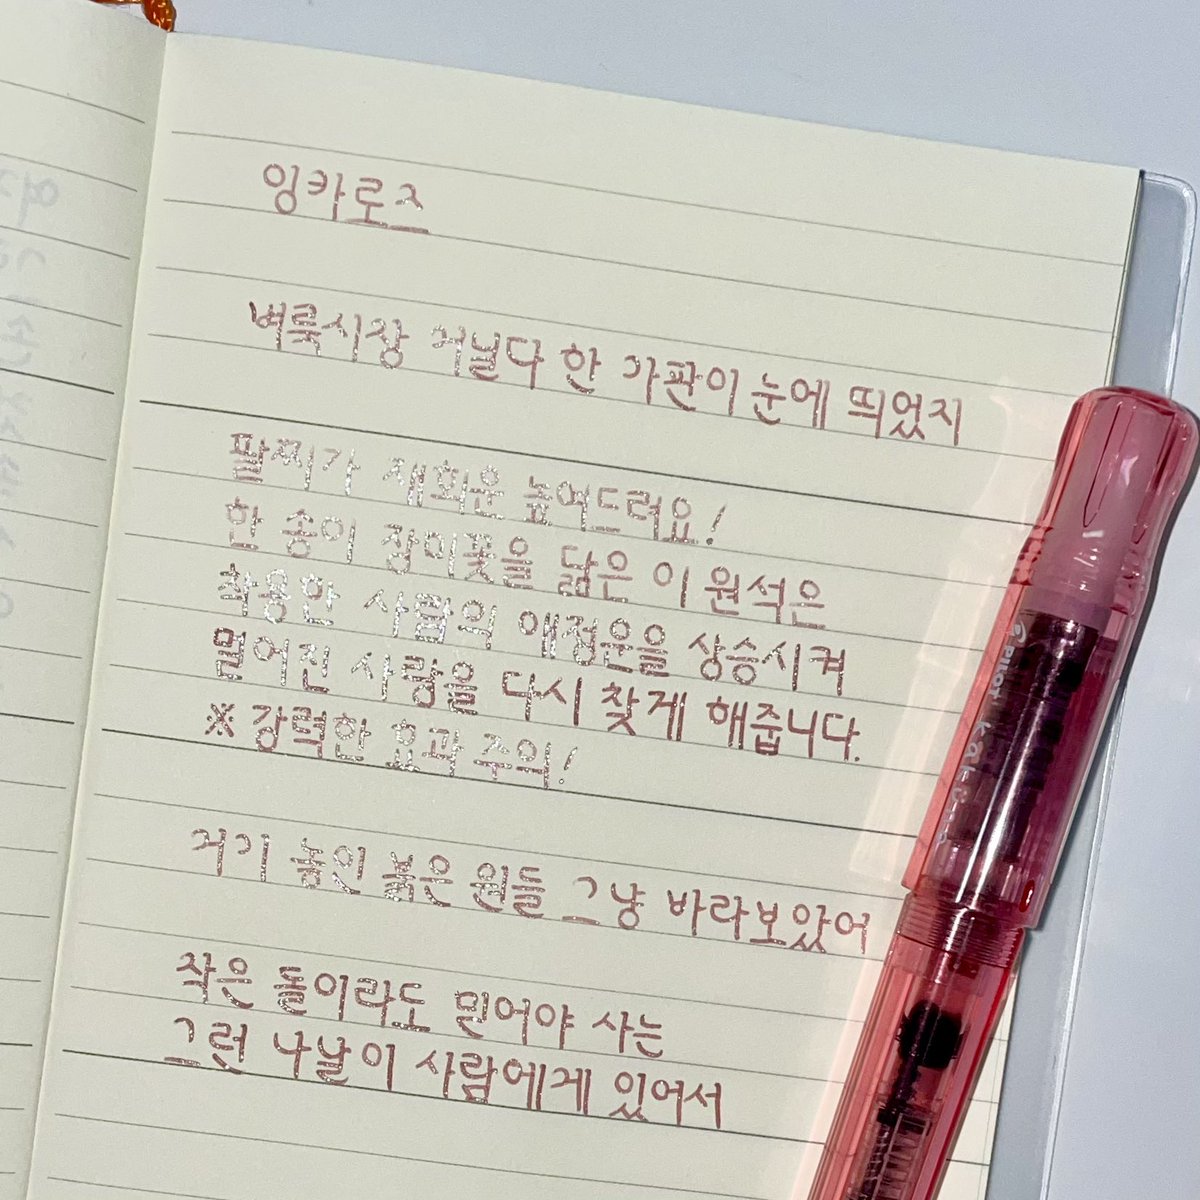 잉카로즈
벼룩시장 거닐다 한 가판이 눈에 띄었지
팔찌가 재회운 높여드려요!
한 송이 장미꽃을 닮은 이 원석은
착용한 사람의 애정운을 상승시켜
멀어진 사랑을 다시 찾게 해줍니다.
※ 강력한 효과 주의!
거기 놓인 붉은 원들 그냥 바라보았어
작은 돌이라도 믿어야 사는
그런 나날이 사람에게 있어서
PILOT Kakuno